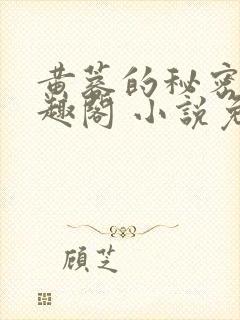 黄蓉的秘密
趣阁 小说免
顾芝